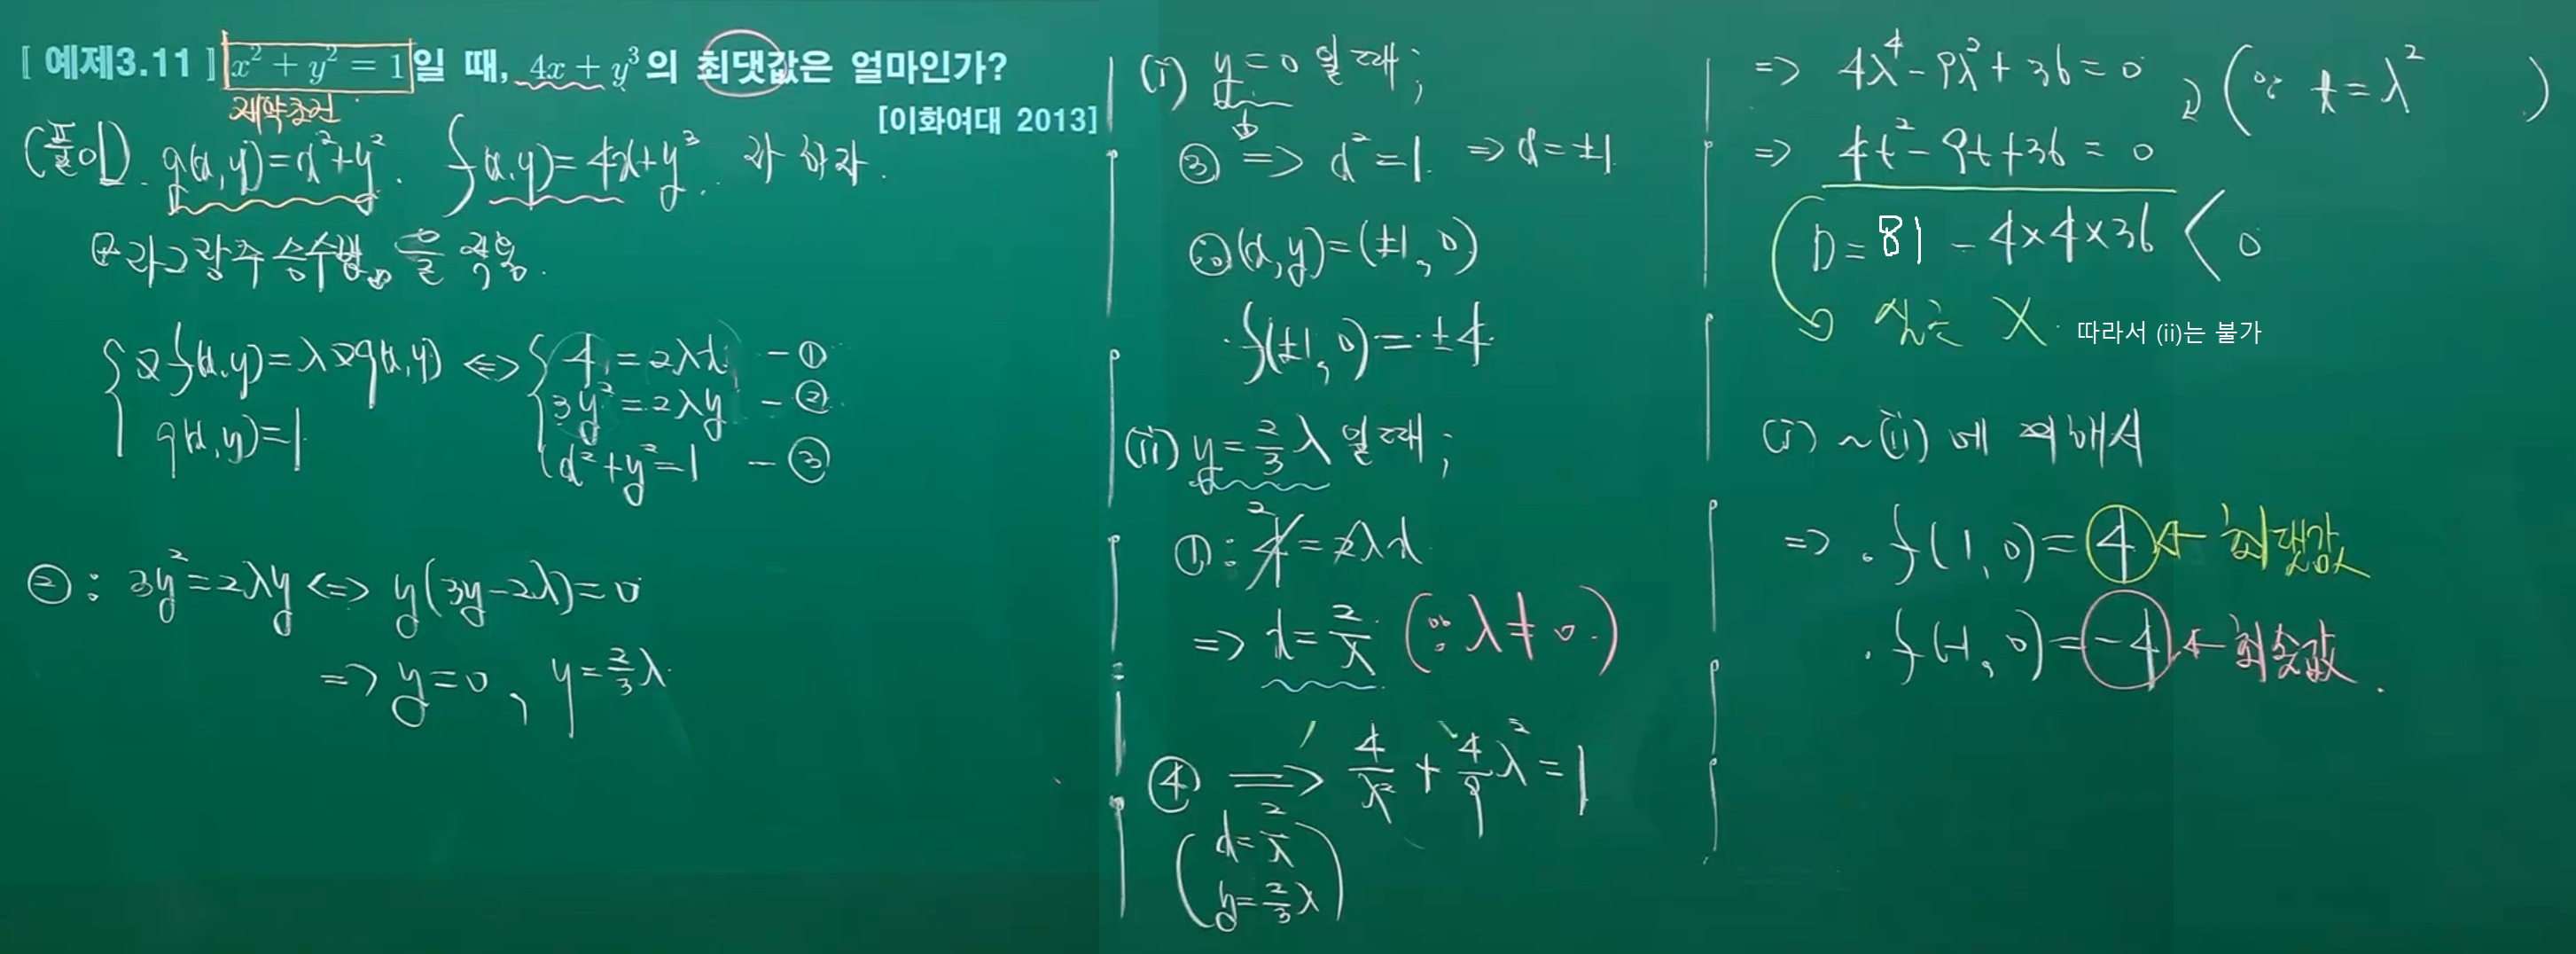 [예제3.11] x² + y² = 1 일 때, 4x + y³의 최댓값은 얼마인가?
제약조건
[이화여대 2013]
(풀이). g(x,y)=x²+y². f(x,y)=4x+y³. 라 하자.
"라그랑주 승수법"을 적용.
{ ∇f(x,y)=λ∇g(x,y) <=> { 4 = 2λx - ①
3y² = 2λy - ②
g(x,y)=1
x²+y²=1 - ③
② : 3y²=2λy <=> y(3y-2λ)=0
=> y=0, y=2/3 λ
(i) y=0 일 때;
③ => x²=1. => x=±1
∴ (x,y)=(±1, 0)
f(±1, 0)=±4
(ii) y=2/3 λ 일 때;
① : 4=2λx 2
=> x=2/λ (∵ λ≠0.)
④ => 4/λ² + 4/9 λ² = 1
( x=2/λ
y=2/3 λ )
=> 4λ⁴-9λ²+36=0
(∵ t=λ² )
=> 4t²-9t+36=0
D=81-4×4×36 < 0
실근 X. 따라서 (ii)는 불가
(i)~(ii)에 의해서
=> . f(1, 0)=4 ← 최댓값
. f(-1, 0)=-4 ← 최솟값.